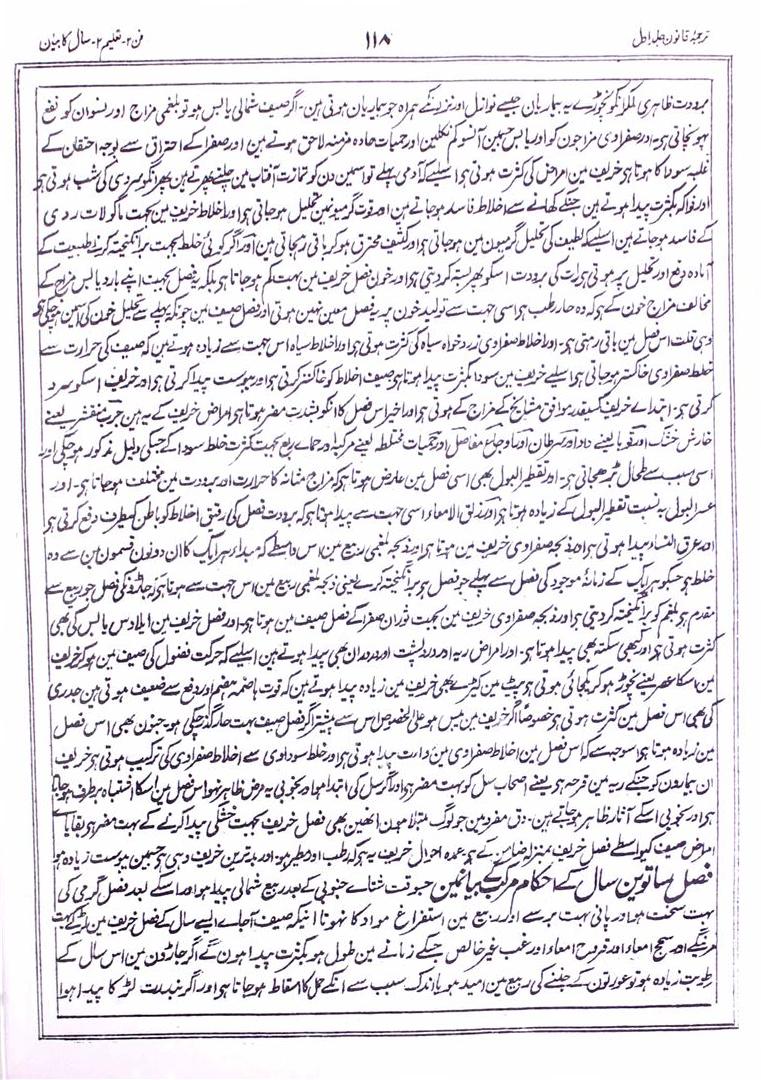 ترجمۂ قانون جلد اول ۱۱۸ فن ۲- تعلیم ۲- سال کا بیان
برودت ظاہری ملکر انکو نچوڑے یہ بیماریان جیسے نوازل اور نزلہ کے ہمراہ جو بیماریان ہوتی ہین- اگر صیف شمالی یابس ہو تو بلغمی مزاج اور نسوان کو نفع
پہونچاتی ہے- اور صفراوی مزاجون کو اور یابس جسمین آنسو کم نکلین اور حمیات حادہ مزمنہ لاحق ہوتے ہین اور صفرا کے احتراق سے بوجہ احتقان کے
غلبہ سودا کا ہوتا ہی خریف مین امراض کی کثرت ہوتی ہی اسلیے کہ آدمی پہلے تو اسمین دن کو تمازت آفتاب مین چلتے پھرتے ہین پھر انکو سردی کی شب ہوتی ہی
اور فواکہ بکثرت پیدا ہوتے ہین جنکے کھانے سے اخلاط فاسد ہو جاتے ہین اور قوت گرمیونمین تحلیل ہو جاتی ہی اور اخلاط خریف مین بجہت ماکولات ردی
کے فاسد ہو جاتے ہین اسلیے کہ لطیف کی تحلیل گرمیون مین ہو جاتی ہی اور کثیف محترق ہو کر باقی رہجاتی ہین اور اگر کوئی خلط بجہت برانگیختہ کرنے طبیعت کے
آمادہ دفع اور تحلیل پر ہوتی ہی رات کی برودت اسکو پھر بستہ کر دیتی ہی اور خون فصل خریف مین بہت کم ہو جاتا ہی بلکہ یہ فصل بجہت اپنے بارد یابس مزاج کے
مخالف مزاج خون کے ہی کہ وہ حار رطب ہی اسی جہت سے تولید خون پر یہ فصل معین نہین ہوتی اور فصل صیف مین چونکہ پہلے سے تحلیل خون کی اسمین ہو چکی ہی
وہی قلت اس فصل مین باقی رہتی ہی- اور اخلاط صفراوی زرد خواہ سیاہ کی کثرت ہوتی ہی اور اخلاط سیاہ اس جہت سے زیادہ ہوتے ہین کہ صیف کی حرارت سے
خلط صفراوی خاکستر ہو جاتی ہی اسلیے خریف مین سودا بکثرت پیدا ہوتا ہی صیف اخلاط کو خاکستر کرتی ہی اور یبوست پیدا کرتی ہی اور خریف اسکو سرد
کرتی ہی- ابتداے خریف کسیقدر موافق مشایخ کے مزاج کے ہوتی ہی اور اخیر اس فصل کا انکو بشدت مضر ہوتا ہی امراض خریف کے یہ ہین جرب متقشر یعنے
خارش خشک اور قوبا یعنے داد اور سرطان اور اوجاع مفاصل اور حمیات مختلط یعنے مرکبہ اور حماے ربع بجہت کثرت خلط سودا کے جسکی دلیل مذکور ہو چکی اور
اسی سبب سے طحال بڑھجاتی ہی- اور تقطیر البول بھی اسی فصل مین عارض ہوتا ہی کہ مزاج مثانہ کا حرارت اور برودت مین مختلف ہو جاتا ہی- اور
عسر البول یہ نسبت تقطیر البول کے زیادہ ہوتا ہی اور زلق الامعاء اسی جہت سے پیدا ہوتا ہی کہ برودت فصل کی رقیق اخلاط کو باطن کیطرف دفع کرتی ہی
اور عرق النساء پیدا ہوتی ہی اور ذبحہ صفراوی خریف مین ہوتا ہی اور ذبحہ بلغمی ربیع مین اس واسطے کہ مبداء ہر ایک کا ان دونون قسمون مین سے وہ
خلط ہی جسکو ہر ایک کے زمانۂ موجود کی فصل سے پہلے جو فصل ہی برانگیختہ کرے یعنی ذبحہ بلغمی ربیع مین اس جہت سے ہوتا ہی کہ جاڑونکی فصل جو ربیع سے
مقدم ہی بلغم کو برانگیختہ کر دیتی ہی اور ذبحہ صفراوی خریف مین بجہت فوران صفرا کے فصل صیف مین ہوتا ہی- اور فصل خریف مین ایلاوس یابس کی بھی
کثرت ہوتی ہی اور کبھی سکتہ بھی پیدا ہوتا ہی- اور امراض ریہ اور درد پشت اور درد ران بھی پیدا ہوتے ہین اسلیے کہ حرکت فضول کی صیف مین ہو کر خریف
مین اسکا عصر یعنے نچوڑ ہو کر یکجائی ہوتی ہی پیٹ مین کیڑے بھی خریف مین زیادہ پیدا ہوتے ہین کہ قوت ہاضمہ ہضم اور دفع سے ضعیف ہوتی ہین جدری
کی بھی اس فصل مین کثرت ہوتی ہی خصوصاً اگر خریف مین یبس ہو علی الخصوص اس سے پیشتر اگر فصل صیف بہت حار گذر چکی ہو- جنون بھی اس فصل
مین زیادہ ہوتا ہی اسوجہ سے کہ اس فصل مین اخلاط صفراوی مین ردارت پیدا ہوتی ہی اور خلط سوداوی سے اخلاط صفراوی کی ترکیب ہوتی ہی خریف
ان بیمارون کو جنکے ریہ مین قرحہ ہی یعنے اصحاب سل کو بہت مضر ہی اور اگر سل کی ابتدا ہو اور بخوبی یہ مرض ظاہر نہو اس فصل مین اسکا اشتباہ برطرف ہو جاتا
ہی اور بخوبی اسکے آثار ظاہر ہو جاتے ہین- دق مفرد مین جو لوگ مبتلا ہون انھین بھی فصل خریف بجہت خشکی پیدا کرنے کے بہت مضر ہی بقایاے
امراض صیف کیواسطے فصل خریف بمنزلہ ضامن کے ہی عمدہ احوال خریف یہ ہی کہ رطب اور مطیر ہو- اور بدترین خریف وہی ہی جسمین یبوست زیادہ ہو
فصل ساتوین سال کے احکام مرکب کے بیان مین جسوقت شتاے جنوبی کے بعد ربیع شمالی پیدا ہو اور اسکے بعد فصل گرمی کی
بہت سخت ہو اور پانی بہت برسے اور ربیع مین استفراغ مواد کا نہوتا اینکہ صیف آجاے ایسے سال کے فصل خریف مین لڑکے بہت
مرینگے اور سحج امعاء اور قروح امعاء اور غب غیر خالص جسکے زمانے مین طول ہو بکثرت پیدا ہون گے اگر جاڑون مین اس سال کے
رطوبت زیادہ ہو تو عورتون کے جننے کی ربیع مین امید ہو یا اندک سبب سے انکے حمل کا اسقاط ہو جاتا ہی اور اگر بندرت لڑکا پیدا ہوا